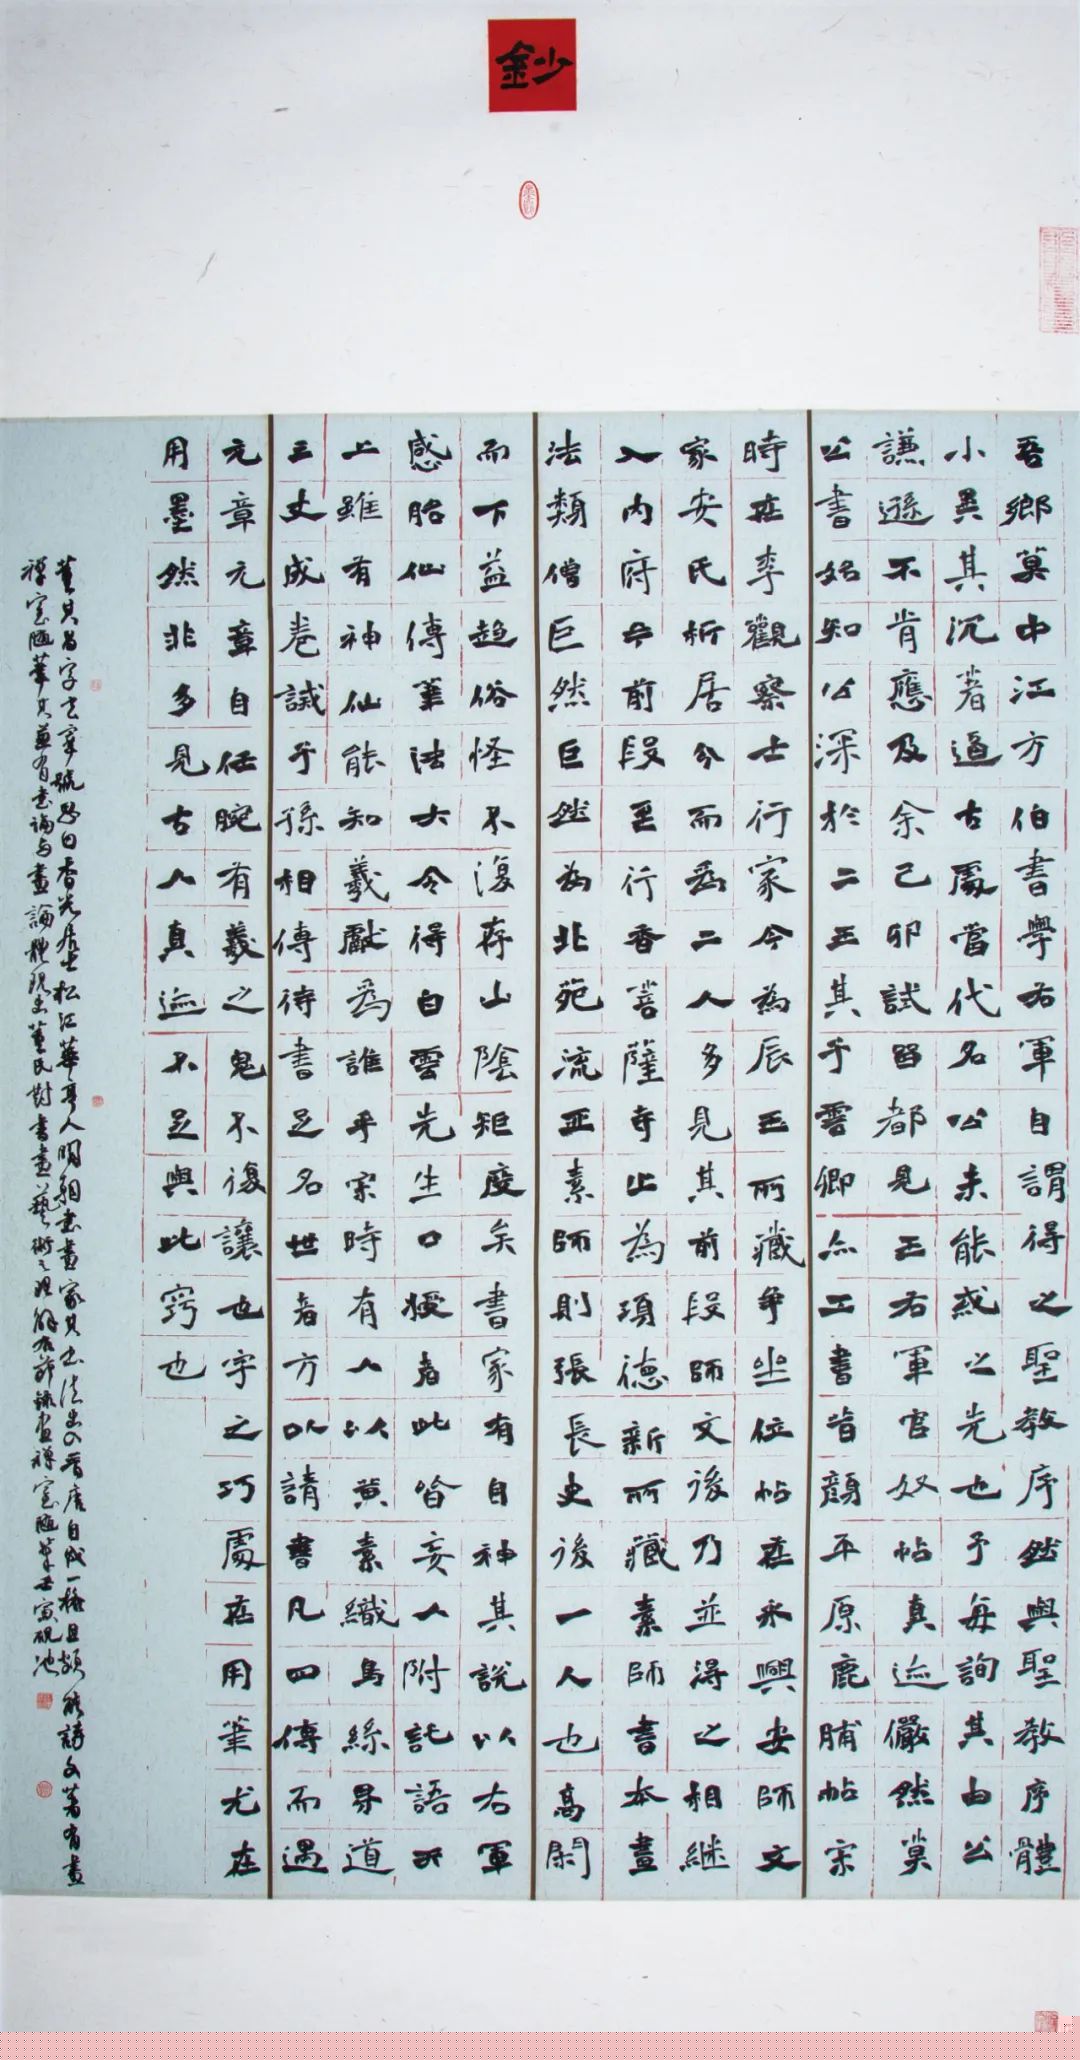 鈔
吾鄉莫中江方伯書學右軍自謂得之聖教序然與聖教序體
小異其沉著遒古處當代名公未能或之先也予每詢其由公
謙遜不肯應及余己卯試留都見王右軍官奴帖真迹儼然莫
公書始知公深於二王其子雲卿亦工書皆顏平原鹿脯帖宋
時在李觀察士行家今為辰玉所藏爭坐位帖在永興安師文
家安氏析居分而為二人多見其前段師文後乃並得之相繼
入內府今前段至行香菩薩寺止為項德新所藏素師書本畫
法類僧巨然巨然為北苑流亞素師則張長史後一人也高閑
而下益趨俗怪不復存山陰矩度矣書家有自神其說以右軍
感胎仙傳筆法大令得白雲先生口授者此皆妄人附託語天
上雖有神仙能知羲獻為誰乎宋時有人以黃素織烏絲界道
三丈成卷誡子孫相傳待書足名世者方以請書凡四傳而遇
元章元章自任腕有羲之鬼不復讓也字之巧處在用筆尤在
用墨然非多見古人真迹不足與此竅也
董其昌字玄宰號思白香光居士松江華亭人明朝書畫家其書法出入晉唐自成一格且頗能詩文著有畫
禪室隨筆其兼有書論與畫論體現出董氏對書畫藝術之理解右節錄畫禪室隨筆壬寅硯池